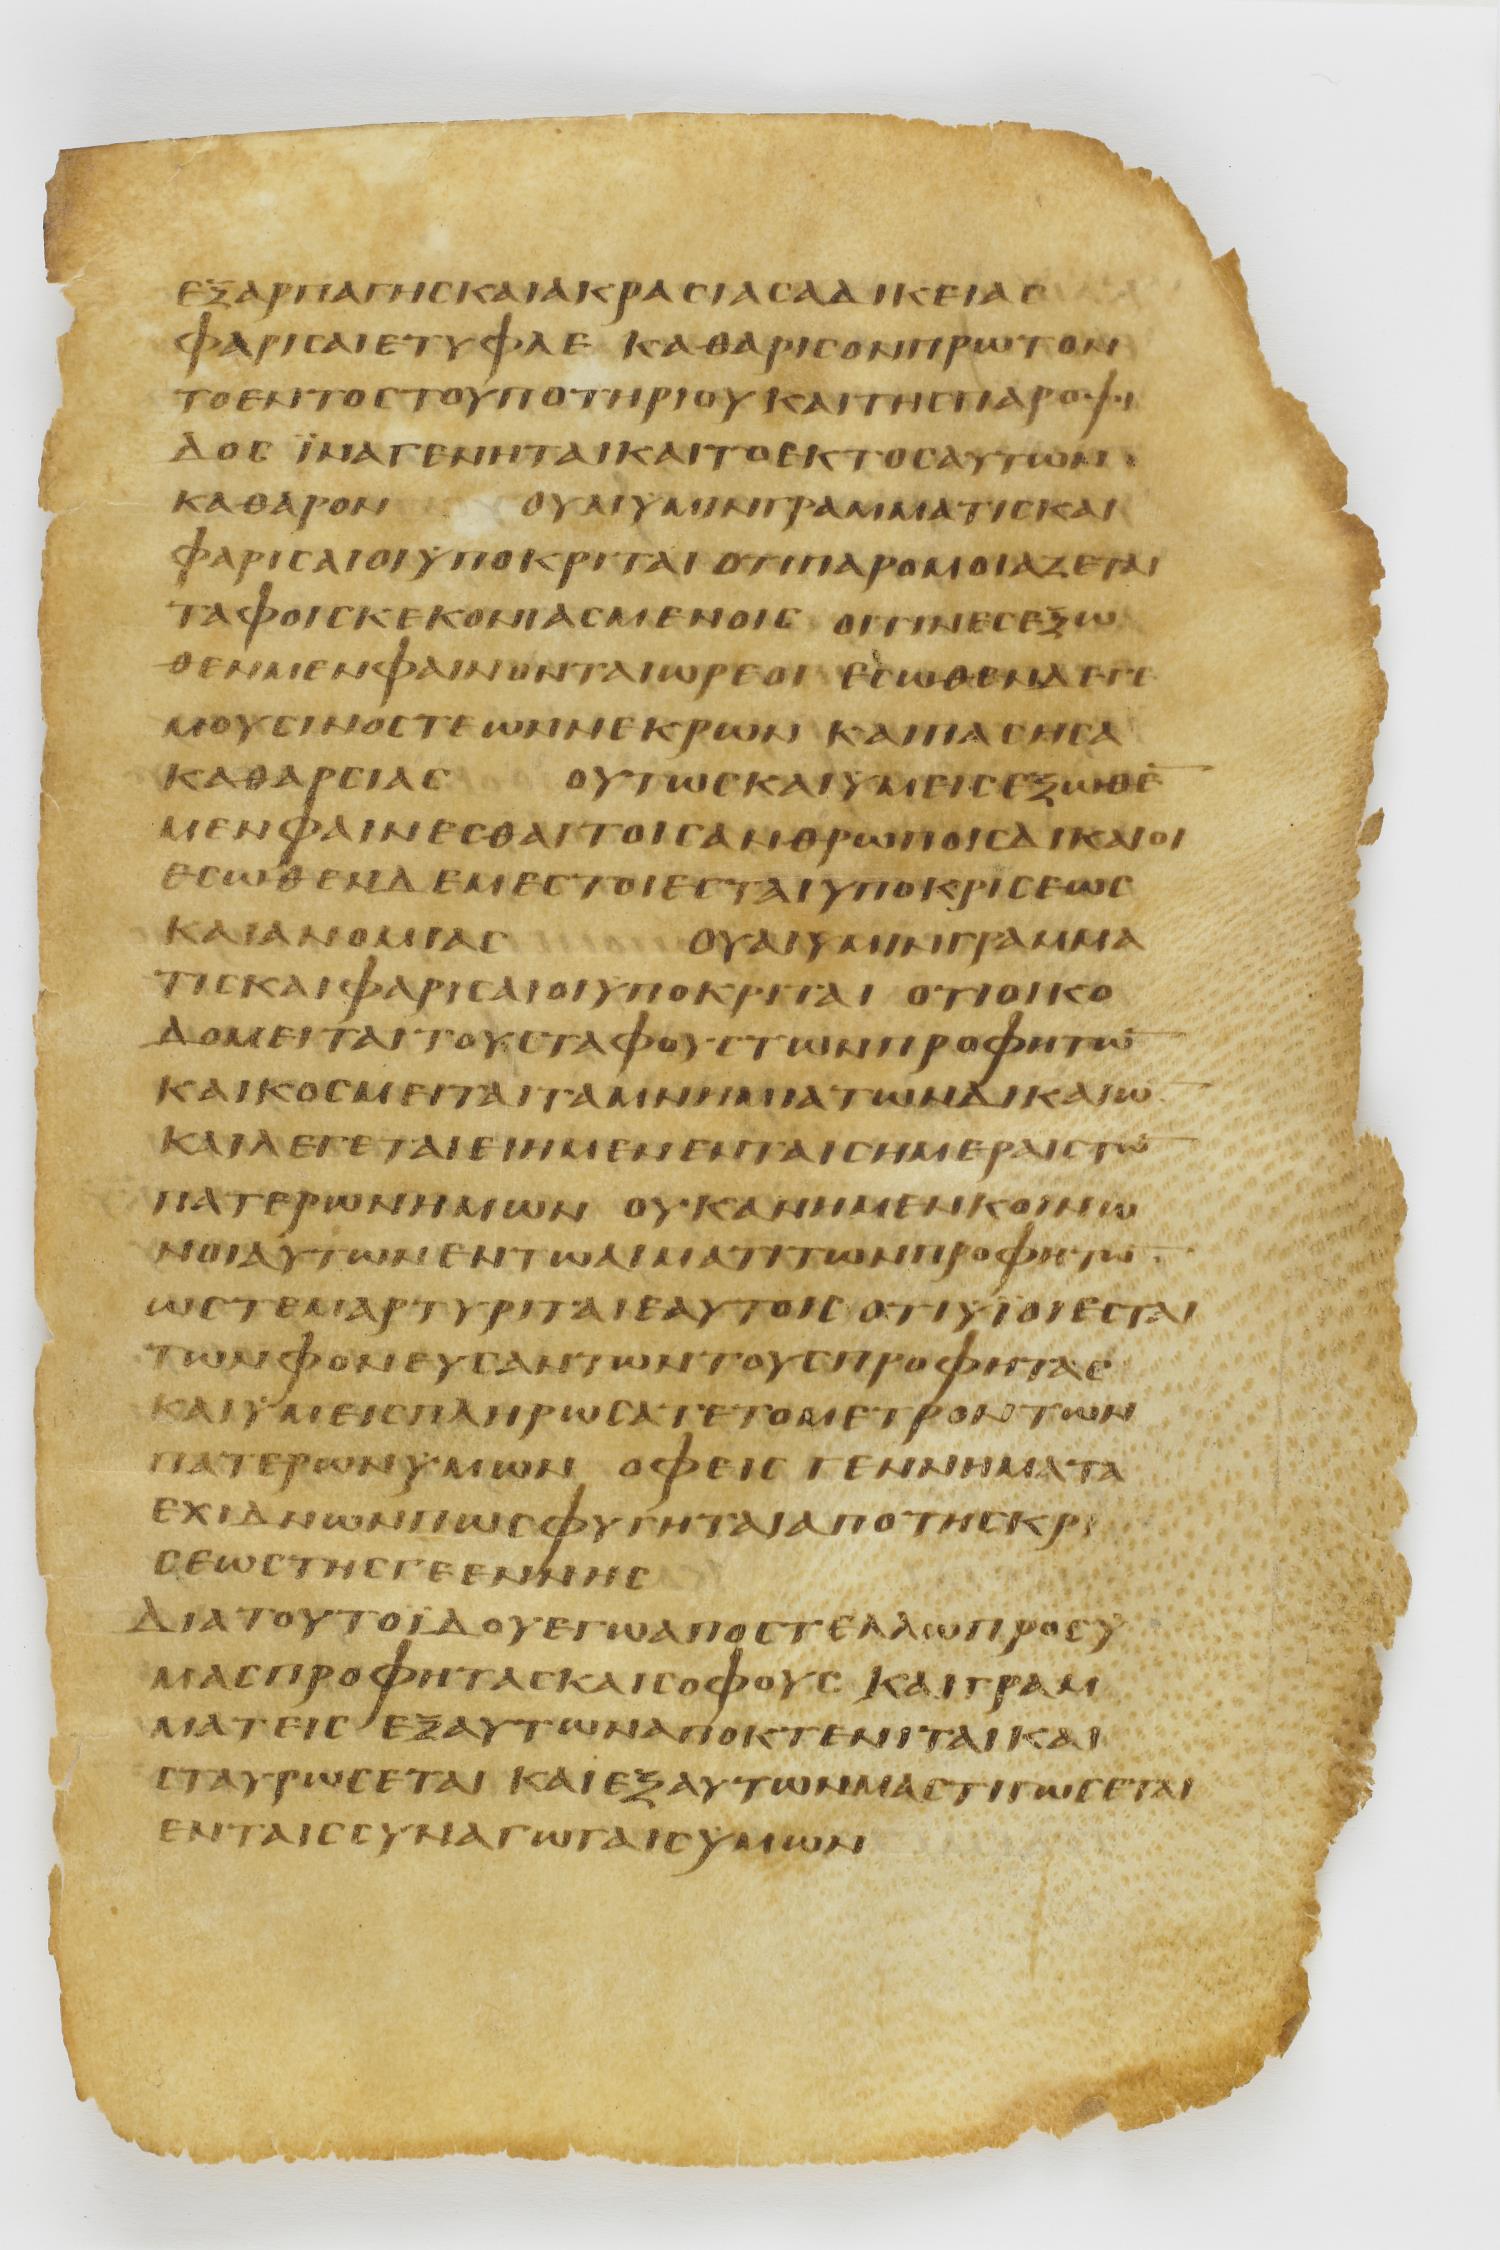 ΕΞΑΡΠΑΓΗϹΚΑΙΑΚΡΑϹΙΑϹΑΔΙΚΕΙΑϹ
ΦΑΡΙϹΑΙΕΤΥΦΛΕ ΚΑΘΑΡΙϹΟΝΠΡΩΤΟΝ
ΤΟΕΝΤΟϹΤΟΥΠΟΤΗΡΙΟΥΚΑΙΤΗϹΠΑΡΟΨΙ
ΔΟϹ ΪΝΑΓΕΝΗΤΑΙΚΑΙΤΟΕΚΤΟϹΑΥΤΩΝ
ΚΑΘΑΡΟΝ ΟΥΑΙΥΜΙΝΓΡΑΜΜΑΤΙϹΚΑΙ
ΦΑΡΙϹΑΙΟΙΥΠΟΚΡΙΤΑΙ ΟΤΙΠΑΡΟΜΟΙΑΖΕΤΑΙ
ΤΑΦΟΙϹΚΕΚΟΝΙΑϹΜΕΝΟΙϹ ΟΙΤΙΝΕϹΕΞΩ
ΘΕΝΜΕΝΦΑΙΝΟΝΤΑΙΩΡΕΟΙ ΕϹΩΘΕΝΔΕΓΕ
ΜΟΥϹΙΝΟϹΤΕΩΝΝΕΚΡΩΝ ΚΑΙΠΑϹΗϹΑ
ΚΑΘΑΡϹΙΑϹ ΟΥΤΩϹΚΑΙΫΜΕΙϹΕΞΩΘΕ̅
ΜΕΝΦΑΙΝΕϹΘΑΙΤΟΙϹΑΝΘΡΩΠΟΙϹΔΙΚΑΙΟΙ
ΕϹΩΘΕΝΔΕΜΕϹΤΟΙΕϹΤΑΙΥΠΟΚΡΙϹΕΩϹ
ΚΑΙΑΝΟΜΙΑϹ ΟΥΑΙΥΜΙΝΓΡΑΜΜΑ
ΤΙϹΚΑΙΦΑΡΙϹΑΙΟΙΥΠΟΚΡΙΤΑΙ ΟΤΙΟΙΚΟ
ΔΟΜΕΙΤΑΙΤΟΥϹΤΑΦΟΥϹΤΩΝΠΡΟΦΗΤΩ̅
ΚΑΙΚΟϹΜΕΙΤΑΙΤΑΜΝΗΜΙΑΤΩΝΔΙΚΑΙΩ̅
ΚΑΙΛΕΓΕΤΑΙΕΙΗΜΕΝΕΝΤΑΙϹΗΜΕΡΑΙϹΤΩ̅
ΠΑΤΕΡΩΝΗΜΩΝ ΟΥΚΑΝΗΜΕΝΚΟΙΝΩ
ΝΟΙΑΥΤΩΝΕΝΤΩΑΙΜΑΤΙΤΩΝΠΡΟΦΗΤΩ̅
ΩϹΤΕΜΑΡΤΥΡΙΤΑΙΕΑΥΤΟΙϹ ΟΤΙΥΪΟΙΕϹΤΑΙ
ΤΩΝΦΟΝΕΥϹΑΝΤΩΝΤΟΥϹΠΡΟΦΗΤΑϹ
ΚΑΙΫΜΕΙϹΠΛΗΡΩϹΑΤΕΤΟΜΕΤΡΟΝΤΩΝ
ΠΑΤΕΡΩΝΫΜΩΝ ΟΦΕΙϹ ΓΕΝΝΗΜΑΤΑ
ΕΧΙΔΝΩΝΠΩϹΦΥΓΗΤΑΙΑΠΟΤΗϹΚΡΙ
ϹΕΩϹΤΗϹΓΕΕΝΝΗϹ
ΔΙΑΤΟΥΤΟΪΔΟΥΕΓΩΑΠΟϹΤΕΛΛΩΠΡΟϹΫ
ΜΑϹΠΡΟΦΗΤΑϹΚΑΙϹΟΦΟΥϹ ΚΑΙΓΡΑΜ
ΜΑΤΕΙϹ ΕΞΑΥΤΩΝΑΠΟΚΤΕΝΙΤΑΙΚΑΙ
ϹΤΑΥΡΩϹΕΤΑΙ ΚΑΙΕΞΑΥΤΩΝΜΑϹΤΙΓΩϹΕΤΑΙ
ΕΝΤΑΙϹϹΥΝΑΓΩΓΑΙϹΫΜΩΝ